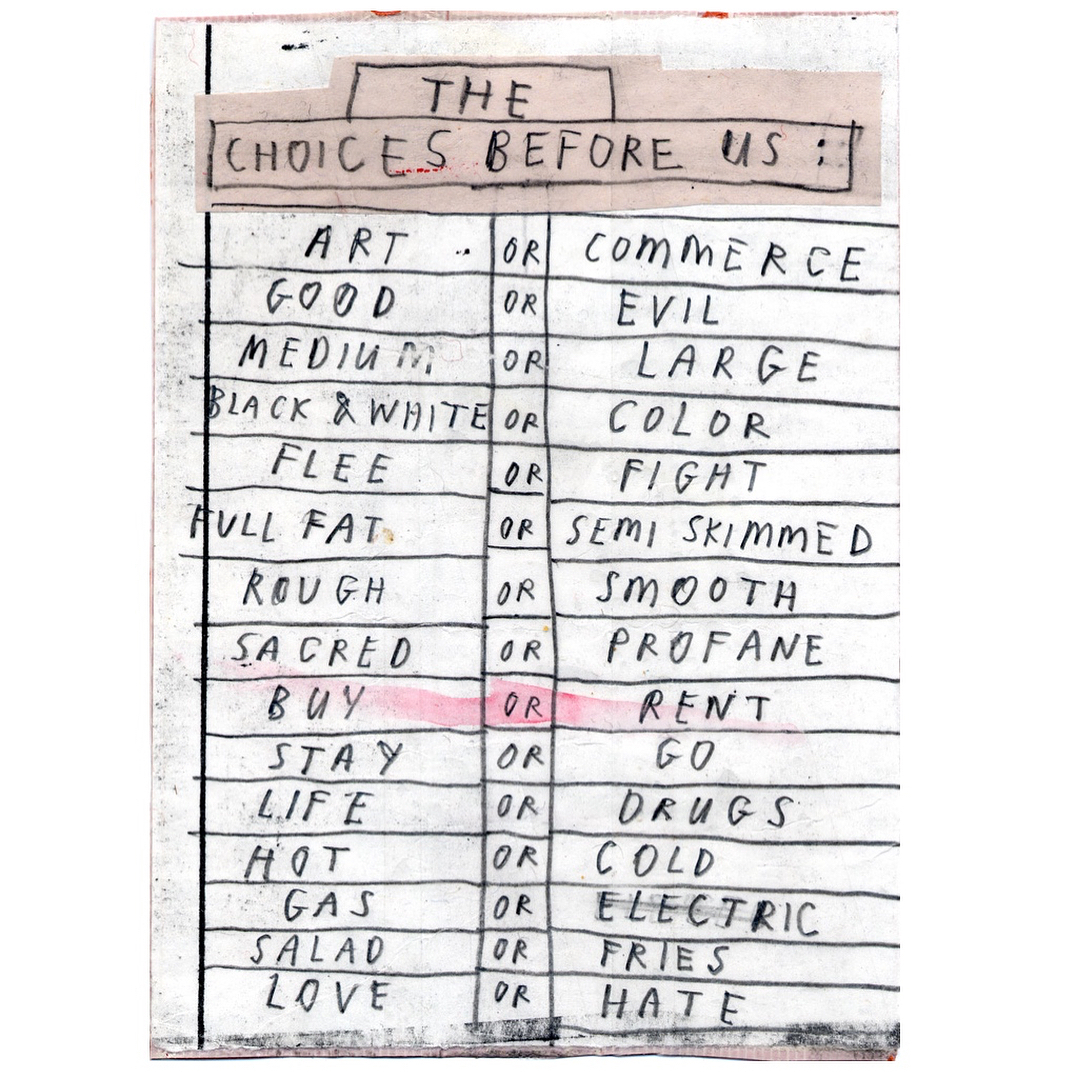 THE
CHOICES BEFORE US :
ART OR COMMERCE
GOOD OR EVIL
MEDIUM OR LARGE
BLACK & WHITE OR COLOR
FLEE OR FIGHT
FULL FAT OR SEMI SKIMMED
ROUGH OR SMOOTH
SACRED OR PROFANE
BUY OR RENT
STAY OR GO
LIFE OR DRUGS
HOT OR COLD
GAS OR ELECTRIC
SALAD OR FRIES
LOVE OR HATE